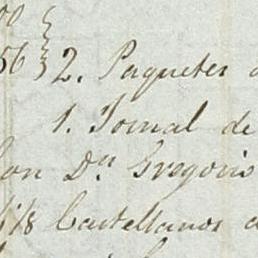 56 } 2. Paquetes
1. Jornal de
Don Dn Gregorio
Castellanos